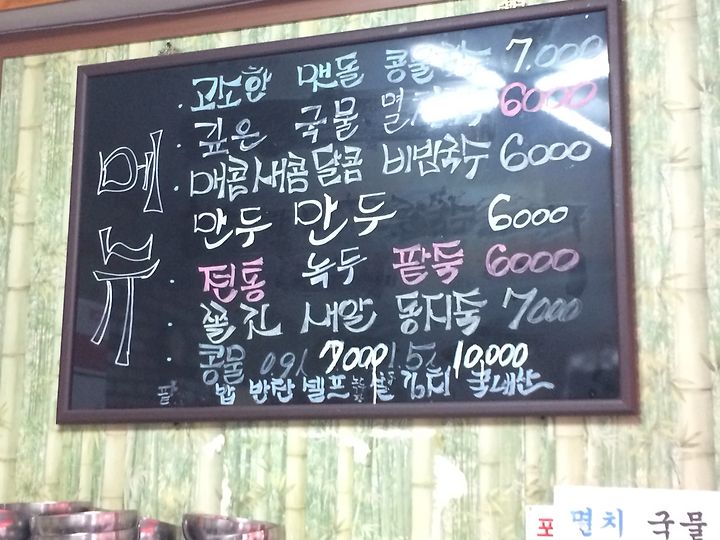 메뉴
고소한 맷돌 콩물국수 7,000
깊은 국물 멸치국수 6000
매콤새콤달콤 비빔국수 6000
만두 만두 6000
전통 녹두 팥죽 6000
쫄깃 새알 동지죽 7000
콩물 0.9l 7000 1.5l 10,000
밥 반찬 셀프 쌀 김치 국내산
포 면치 국물